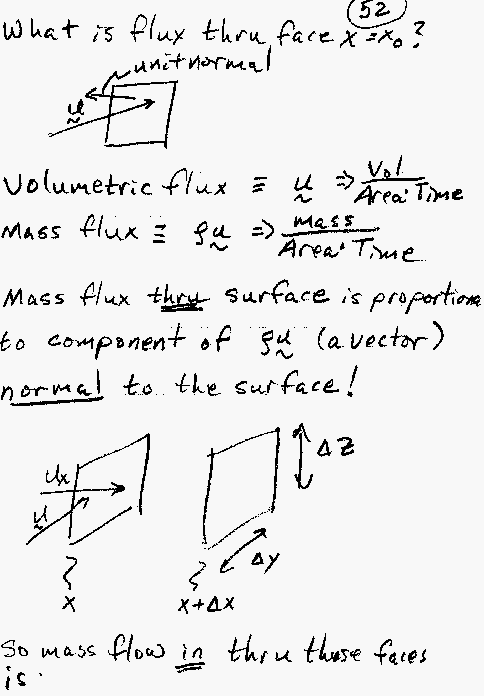 52
What is flux thru face x = x₀?
unit normal
u
Volumetric flux ≡ u ⇒ Vol / Area·Time
Mass flux ≡ ρu ⇒ mass / Area·Time
Mass flux thru surface is proportiona
to component of ρu (a vector)
normal to the surface!
Δz
uₓ
u
Δy
x
x+Δx
So mass flow in thru those faces
is: